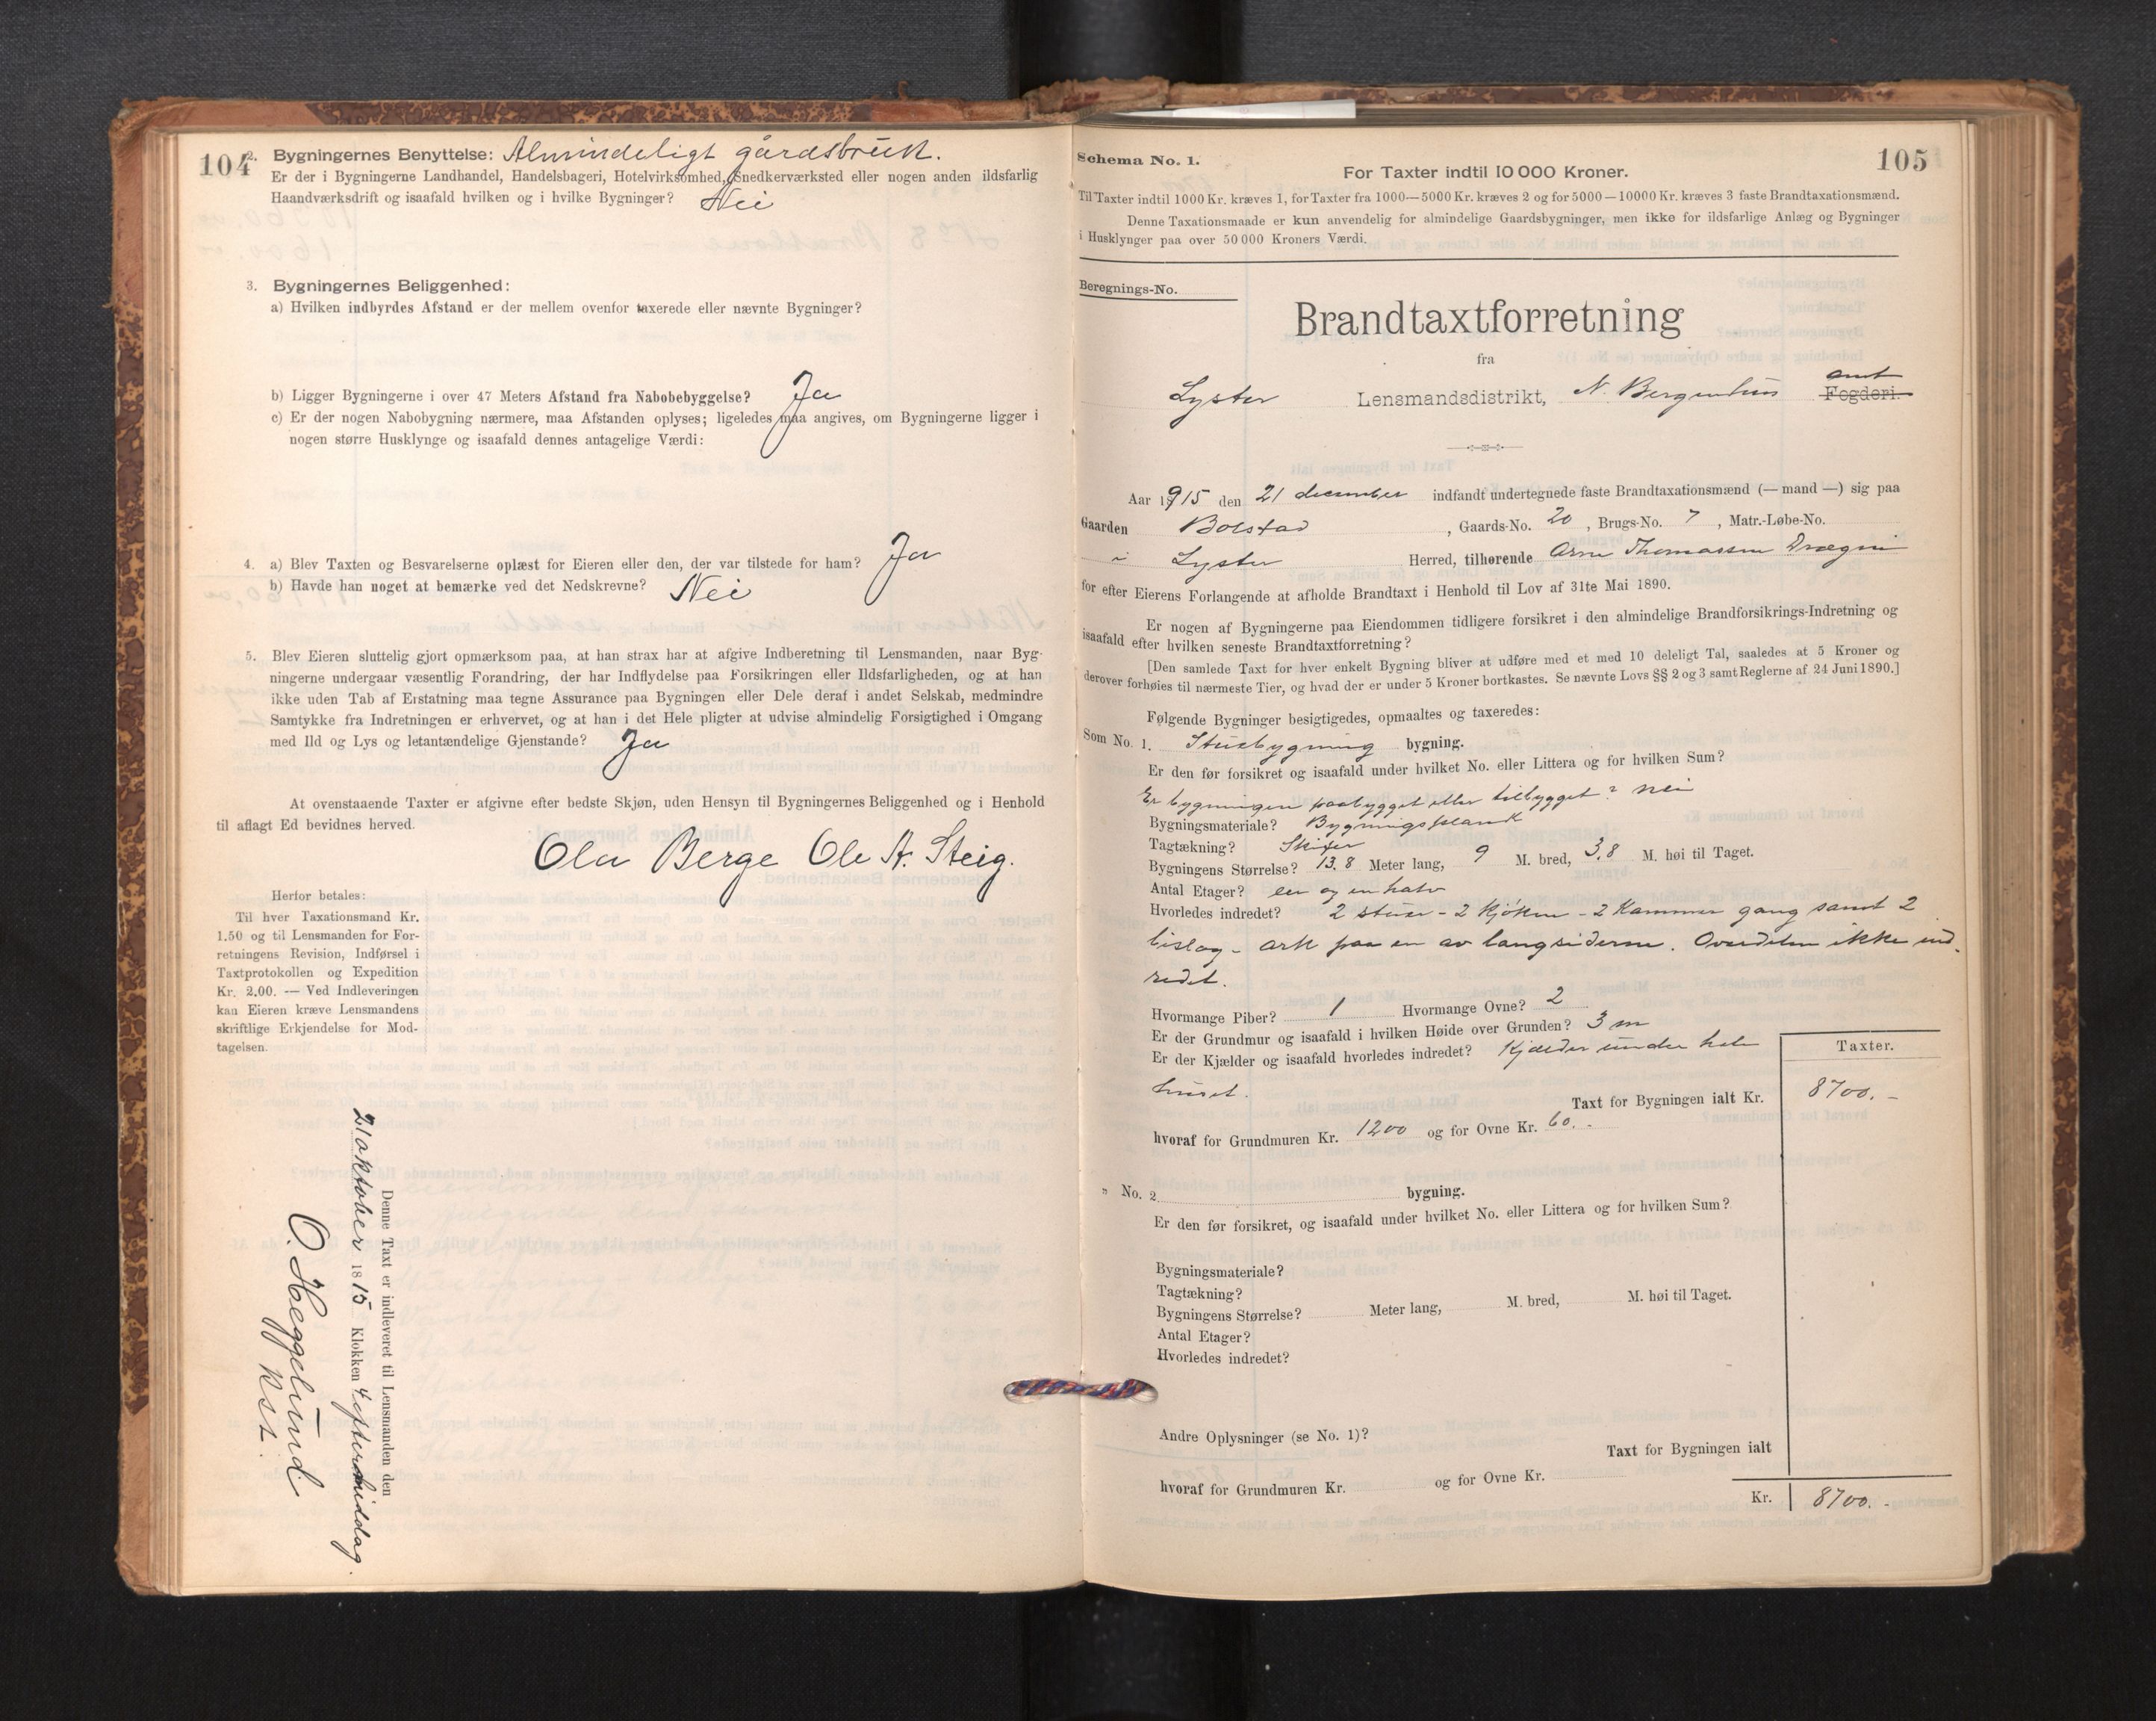 104
2. Bygningernes Benyttelse: Almindeligt gårdsbruk.
Er der i Bygningerne Landhandel, Handelsbageri, Hotelvirksomhed, Snedkerværksted eller nogen anden ildsfarlig
Haandværksdrift og isaafald hvilken og i hvilke Bygninger? Nei
3. Bygningernes Beliggenhed:
a) Hvilken indbyrdes Afstand er der mellem ovenfor taxerede eller nævnte Bygninger?
b) Ligger Bygningerne i over 47 Meters Afstand fra Nabobebyggelse? Ja
c) Er der nogen Nabobygning nærmere, maa Afstanden oplyses; ligeledes maa angives, om Bygningerne ligger i
nogen større Husklynge og isaafald dennes antagelige Værdi:
4. a) Blev Taxten og Besvarelserne oplæst for Eieren eller den, der var tilstede for ham? Ja
b) Havde han noget at bemærke ved det Nedskrevne? Nei
5. Blev Eieren sluttelig gjort opmærksom paa, at han strax har at afgive Indberetning til Lensmanden, naar Byg-
ningerne undergaar væsentlig Forandring, der har Indflydelse paa Forsikringen eller Ildsfarligheden, og at han
ikke uden Tab af Erstatning maa tegne Assurance paa Bygningen eller Dele deraf i andet Selskab, medmindre
Samtykke fra Indretningen er erhvervet, og at han i det Hele pligter at udvise almindelig Forsigtighed i Omgang
med Ild og Lys og letantændelige Gjenstande? Ja
At ovenstaaende Taxter er afgivne efter bedste Skjøn, uden Hensyn til Bygningernes Beliggenhed og i Henhold
til aflagt Ed bevidnes herved.
Ola Berge Ole A. Steig.
Herfor betales:
Til hver Taxationsmand Kr.
1.50 og til Lensmanden for For-
retningens Revision, Indførsel i
Taxtprotokollen og Expedition
Kr. 2.00. — Ved Indleveringen
kan Eieren kræve Lensmandens
skriftlige Erkjendelse for Mod-
tagelsen.
Denne Taxt er indleveret til Lensmanden den
21 oktober 1815 Klokken 4 eftermiddag.
O. Hæggelund
Schema No. 1.
105
For Taxter indtil 10 000 Kroner.
Til Taxter indtil 1000 Kr. kræves 1, for Taxter fra 1000—5000 Kr. kræves 2 og for 5000—10000 Kr. kræves 3 faste Brandtaxationsmænd.
Denne Taxationsmaade er kun anvendelig for almindelige Gaardsbygninger, men ikke for ildsfarlige Anlæg og Bygninger
i Husklynger paa over 50 000 Kroners Værdi.
Beregnings-No.
Brandtaxtforretning
fra
amt
Lyster Lensmandsdistrikt, N. Bergenhus Fogderi.
Aar 1915 den 21 december indfandt undertegnede faste Brandtaxationsmænd (— mand —) sig paa
Gaarden Bolstad, Gaards-No. 20, Brugs-No. 7, Matr.-Løbe-No.
i Lyster Herred, tilhørende Arne Thomassen Drægni
for efter Eierens Forlangende at afholde Brandtaxt i Henhold til Lov af 31te Mai 1890.
Er nogen af Bygningerne paa Eiendommen tidligere forsikret i den almindelige Brandforsikrings-Indretning og
isaafald efter hvilken seneste Brandtaxtforretning?
[Den samlede Taxt for hver enkelt Bygning bliver at udføre med et med 10 deleligt Tal, saaledes at 5 Kroner og
derover forhøies til nærmeste Tier, og hvad der er under 5 Kroner bortkastes. Se nævnte Lovs §§ 2 og 3 samt Reglerne af 24 Juni 1890.]
Følgende Bygninger besigtigedes, opmaaltes og taxeredes:
Som No. 1. Stuebygning bygning.
Er den før forsikret og isaafald under hvilket No. eller Littera og for hvilken Sum?
Er bygningen paabygget eller tilbygget? nei
Bygningsmateriale? Bygningsplank
Tagtækning? Skifer
Bygningens Størrelse? 13,8 Meter lang, 9 M. bred, 3,8 M. høi til Taget.
Antal Etager? een og en halv
Hvorledes indredet? 2 stuer - 2 kjøken - 2 Kammer gang samt 2
bislag - ark paa en av langsiderne. Overdelen ikke ind-
redet.
Hvormange Piber? 1 Hvormange Ovne? 2
Er der Grundmur og isaafald i hvilken Høide over Grunden? 3 m
Er der Kjælder og isaafald hvorledes indredet? Kjælder under hele
huset.
Taxter.
Taxt for Bygningen ialt Kr. 8700.-
hvoraf for Grundmuren Kr. 1200 og for Ovne Kr. 60.-
" No. 2 bygning.
Er den før forsikret, og isaafald under hvilket No. eller Littera og for hvilken Sum?
Bygningsmateriale?
Tagtækning?
Bygningens Størrelse? Meter lang, M. bred, M. høi til Taget.
Antal Etager?
Hvorledes indredet?
Andre Oplysninger (se No. 1)?
Taxt for Bygningen ialt
hvoraf for Grundmuren Kr. og for Ovne Kr.
Kr. 8700.-